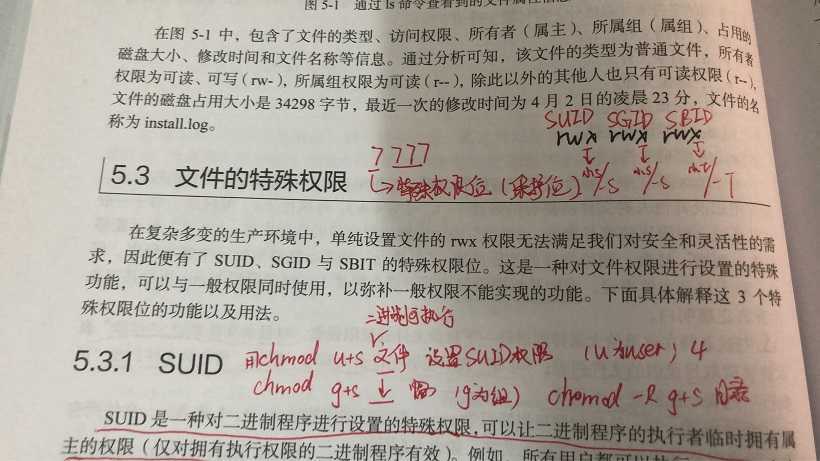 图 5-1 通过 ls 命令查看到的文件属性信息
在图 5-1 中，包含了文件的类型、访问权限、所有者（属主）、所属组（属组）、占用的
磁盘大小、修改时间和文件名称等信息。通过分析可知，该文件的类型为普通文件，所有者
权限为可读、可写（rw-），所属组权限为可读（r--），除此以外的其他人也只有可读权限（r--），
文件的磁盘占用大小是 34298 字节，最近一次的修改时间为 4 月 2 日的凌晨 23 分，文件的名
称为 install.log。
SUID SGID SBID
rwx rwx rwx
7 777
5.3 文件的特殊权限
特殊权限位（
在复杂多变的生产环境中，单纯设置文件的 rwx 权限无法满足我们对安全和灵活性的需
求，因此便有了 SUID、SGID 与 SBIT 的特殊权限位。这是一种对文件权限进行设置的特殊
功能，可以与一般权限同时使用，以弥补一般权限不能实现的功能。下面具体解释这 3 个特
殊权限位的功能以及用法。
二进制可执行
5.3.1 SUID
用chmod u+s 文件 设置SUID权限 （u为user）4
chmod g+s （g为组） chomod -R g+s 目录
SUID 是一种对二进制程序进行设置的特殊权限，可以让二进制程序的执行者临时拥有属
主的权限（仅对拥有执行权限的二进制程序有效）。例如，所有用户都可以执行